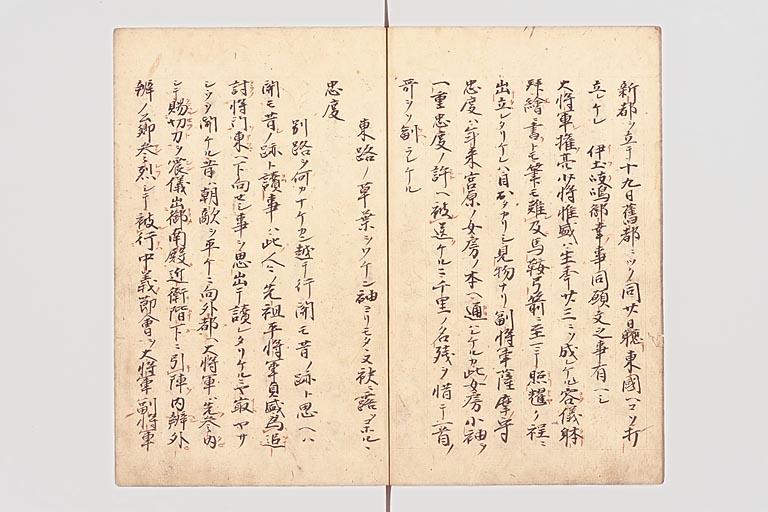 新都ノ立テ十九日舊都ニツク同廿日聽東國ヘコソ打
立ケレ 伊土岐嶋御幸事同願文之事有ヘシ
大将軍権亮少将惟盛ハ生年廿三ニソ成ケル容儀躰
拜繪ニ書トモ筆モ難及馬鞍弓箭ニ至マテ照耀ク程ニ
出立レタリケレハ目出タカリシ見物ナリ副将軍薩摩守
忠度ハ年来宮原ノ女房ノ本ヘ通ハレケルカ此女房小袖ヲ
一重忠度ノ許ヘ被送ケルニ千里ノ名残ヲ惜テ一首ノ
哥ヲソ副ラレケル
東路ノ草葉ヲワケン袖ヨリモタヽヌ袂ハ露コホルヽ
忠度
別路ヲ何カナケカン越テ行関モ昔ノ跡ト思ヘハ
関モ昔ノ跡ト讀事ハ此人々ノ先祖平将軍貞盛為追
討将門東ヘ下向セシ事ヲ思出テ讀レタリケルニヤ最ヤサ
シクソ聞ケル昔ハ朝敵ヲ平ケニ向外都ヘ大将軍ハ先参内
シテ賜切刀ヲ震儀出御南殿近衛階下ニ引陣内辨外
辨ノ公卿参烈シテ被行中義節會ヲ大将軍副将軍